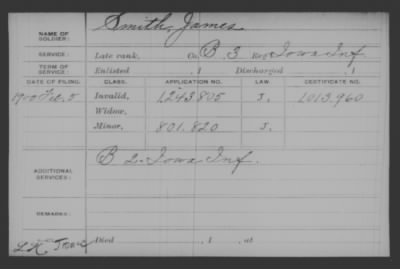 Smith, James
NAME OF SOLDIER:
SERVICE: Late rank, Co. B 3 Reg't Iowa Inf
TERM OF SERVICE: Enlisted , 1 Discharged , 1
DATE OF FILING. CLASS. APPLICATION NO. LAW. CERTIFICATE NO.
1900 Feb. 5 Invalid, 1243.805 J. 1013.960
Widow,
Minor, 801.820 J.
B 2. Iowa Inf.
ADDITIONAL SERVICES:
REMARKS:
Died , 1 , at